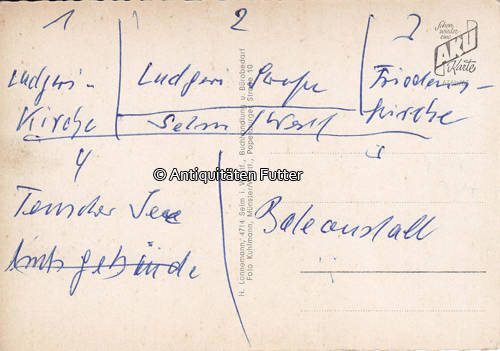 1
2
3
Ludgeri-
Kirche
Ludgeri Straße
Selm / Westf
Friedens-
Kirche
4
5
Ternscher See
Amtsgebäude
Badeanstalt
© Antiquitäten Futter
Schon wieder eine
AKU
Karte
H. Lonnemann, 4714 Selm i. Westf., Buchhandlung u. Bürobedarf
Foto Kuhlmann, Münster/Westf., Papenburger Straße 10